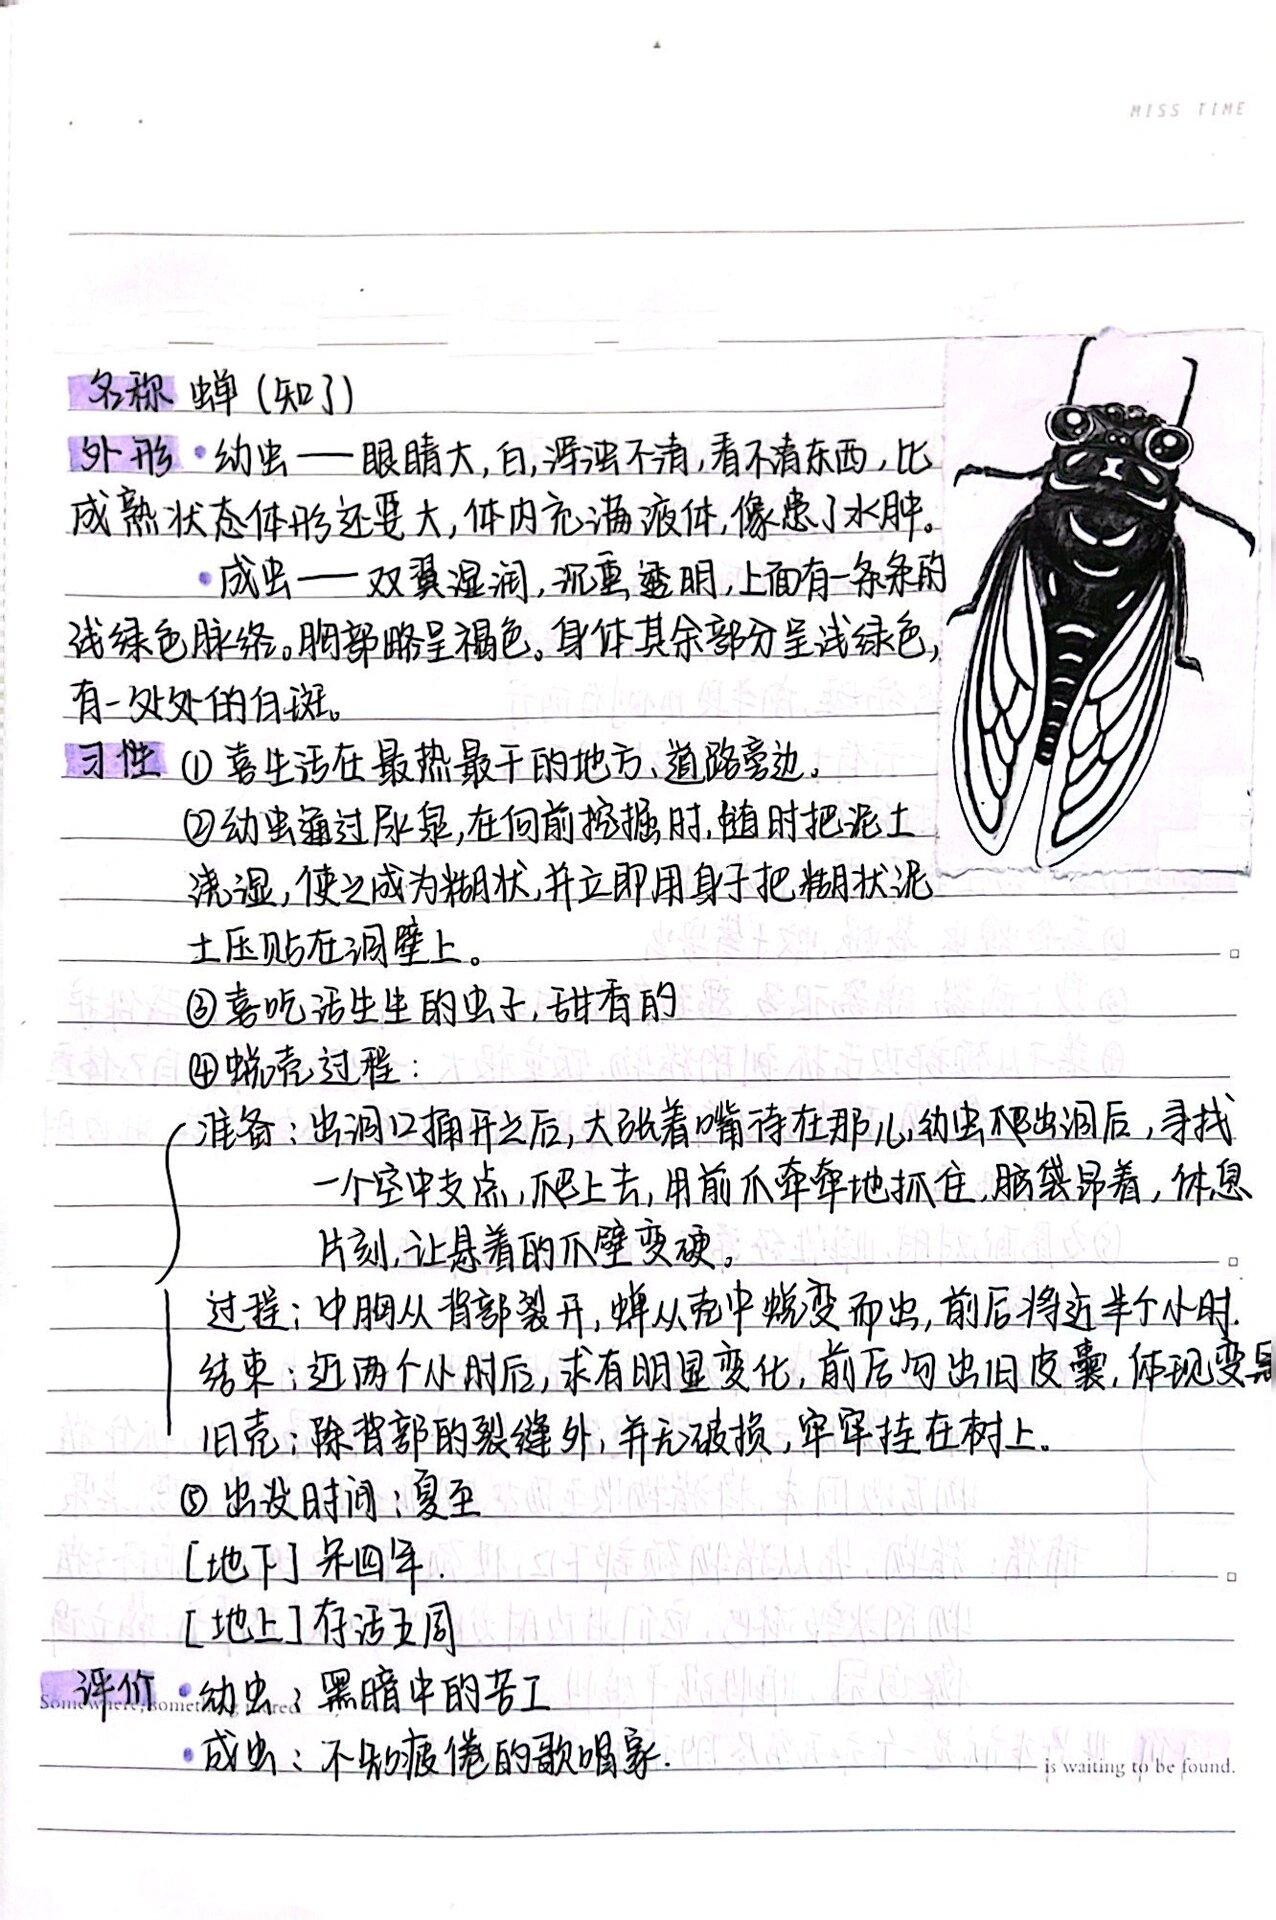 MISS TIME
名称 蝉(知了)
外形 ·幼虫——眼睛大,白,浑浊不清,看不清东西,比
成熟状态体形还要大,体内充满液体,像患了水肿。
·成虫——双翼湿润,沉重,透明,上面有一条条的
浅绿色脉络。胸部略呈褐色。身体其余部分呈浅绿色,
有一处处的白斑。
习性 ①喜生活在最热最干的地方、道路旁边。
②幼虫通过尿泉,在向前挖掘时,随时把泥土
浇湿,使之成为糊状,并立即用身子把糊状泥
土压贴在洞壁上。
③喜吃活生生的虫子,甜香的
④蜕壳过程:
准备:出洞口捅开之后,大张着嘴待在那儿,幼虫爬出洞后,寻找
一个空中支点,爬上去,用前爪牵牵地抓住,脑袋昂着,休息
片刻,让悬着的爪壁变硬。
过程:中胸从背部裂开,蝉从壳中蜕变而出,前后将近半个小时.
结束:近两个小时后,求有明显变化,前后勾出旧皮囊,体现变黑
旧壳:除背部的裂缝外,并无破损,牢牢挂在树上。
⑤出没时间:夏至
[地下]呆四年.
[地上]存活五周
评价 ·幼虫:黑暗中的苦工
Somewhere, something
·成虫:不知疲倦的歌唱家.
is waiting to be found.